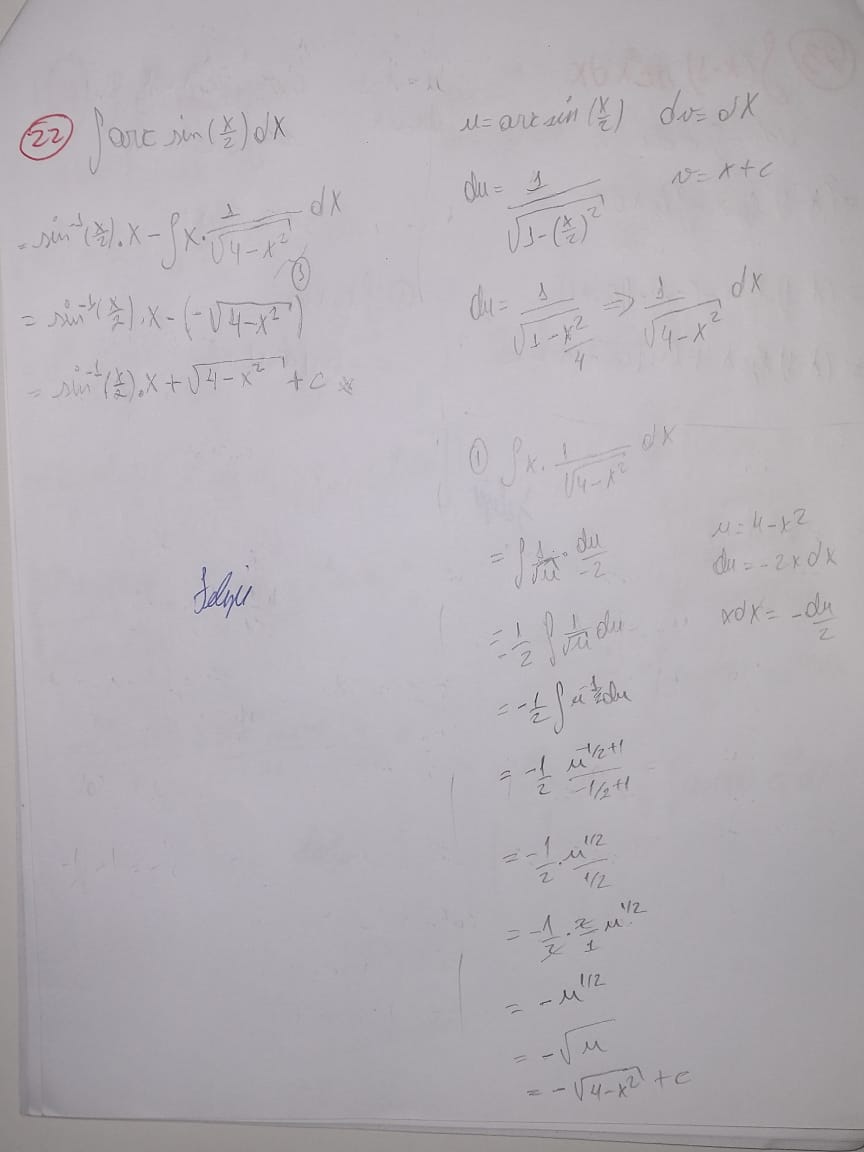 22 ∫ arc sin(x/2) dx
= sin⁻¹(x/2).x - ∫x. 1/√(4-x²) dx
①
= sin⁻¹(x/2).x - (-√(4-x²))
= sin⁻¹(x/2).x + √(4-x²) + c
u = arc sin(x/2) dv = dx
du = 1/√(1-(x/2)²) v = x+c
du = 1/√(1-x²/4) ⇒ 1/√(4-x²) dx
① ∫x. 1/√(4-x²) dx
= ∫ 1/√u . du/-2
u = 4-x²
du = -2x dx
xdx = -du/2
= -1/2 ∫ 1/√u du
= -1/2 ∫ u^-1/2 du
= -1/2 u^-1/2+1/-1/2+1
= -1/2 . u^1/2/1/2
= -1/2 . 2/1 u^1/2
= -u^1/2
= -√u
= -√(4-x²) + c